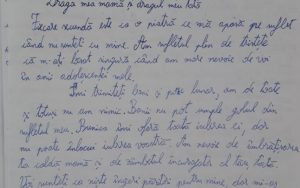 Draga mea mamă și dragul meu tată
Fiecare secundă este ca o piatră ce mă apasă pe suflet
când nu sunteți cu mine. Am sufletul plin de tristețe
că m-ați lăsat singură când am mare nevoie de voi
în anii adolescenței mele.
Îmi trimiteți bani și pote lunar, am de toate
și totuși nu am nimic. Banii nu pot umple golul din
sufletul meu. Bunica îmi oferă toată iubirea ei, dar
nu poate înlocui iubirea voastră. Am nevoie de îmbrățișarea
ta caldă mamă și de zâmbetul încurajator al tău, tată.
Voi sunteți ca niște îngeri păzitori pentru mine, dar mi-aș